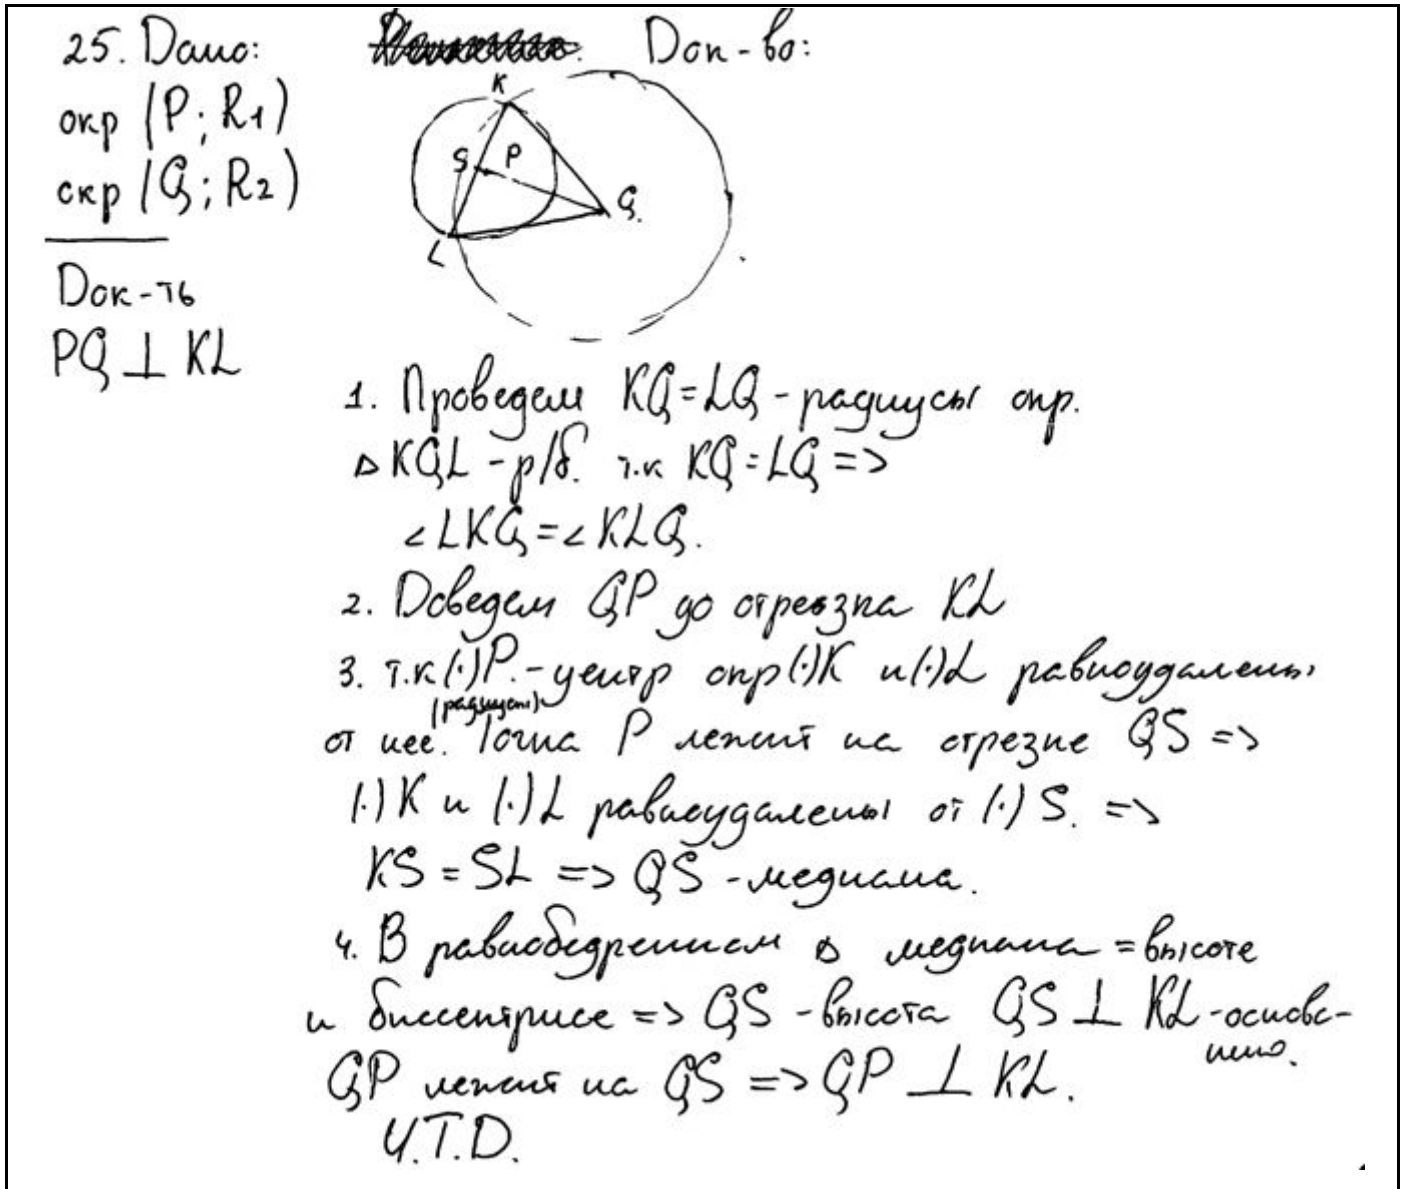 25. Дано:
Док-во:
окр (P; R1)
окр (Q; R2)
Док-ть
PQ ⊥ KL
K
S P
Q.
L
1. Проведем KQ = LQ - радиусы окр.
△ KQL - р/б. т.к KQ = LQ =>
∠ LKQ = ∠ KLQ.
2. Доведем QP до отрезка KL
3. т.к (·) P. - центр окр (·) K и (·) L равноудалены
(радиусы)
от нее. Точка P лежит на отрезке QS =>
(·) K и (·) L равноудалены от (·) S. =>
KS = SL => QS - медиана.
4. В равнобедренном △ медиана = высоте
и биссектрисе => QS - высота QS ⊥ KL - основа-
нию.
QP лежит на QS => QP ⊥ KL.
Ч.Т.D.